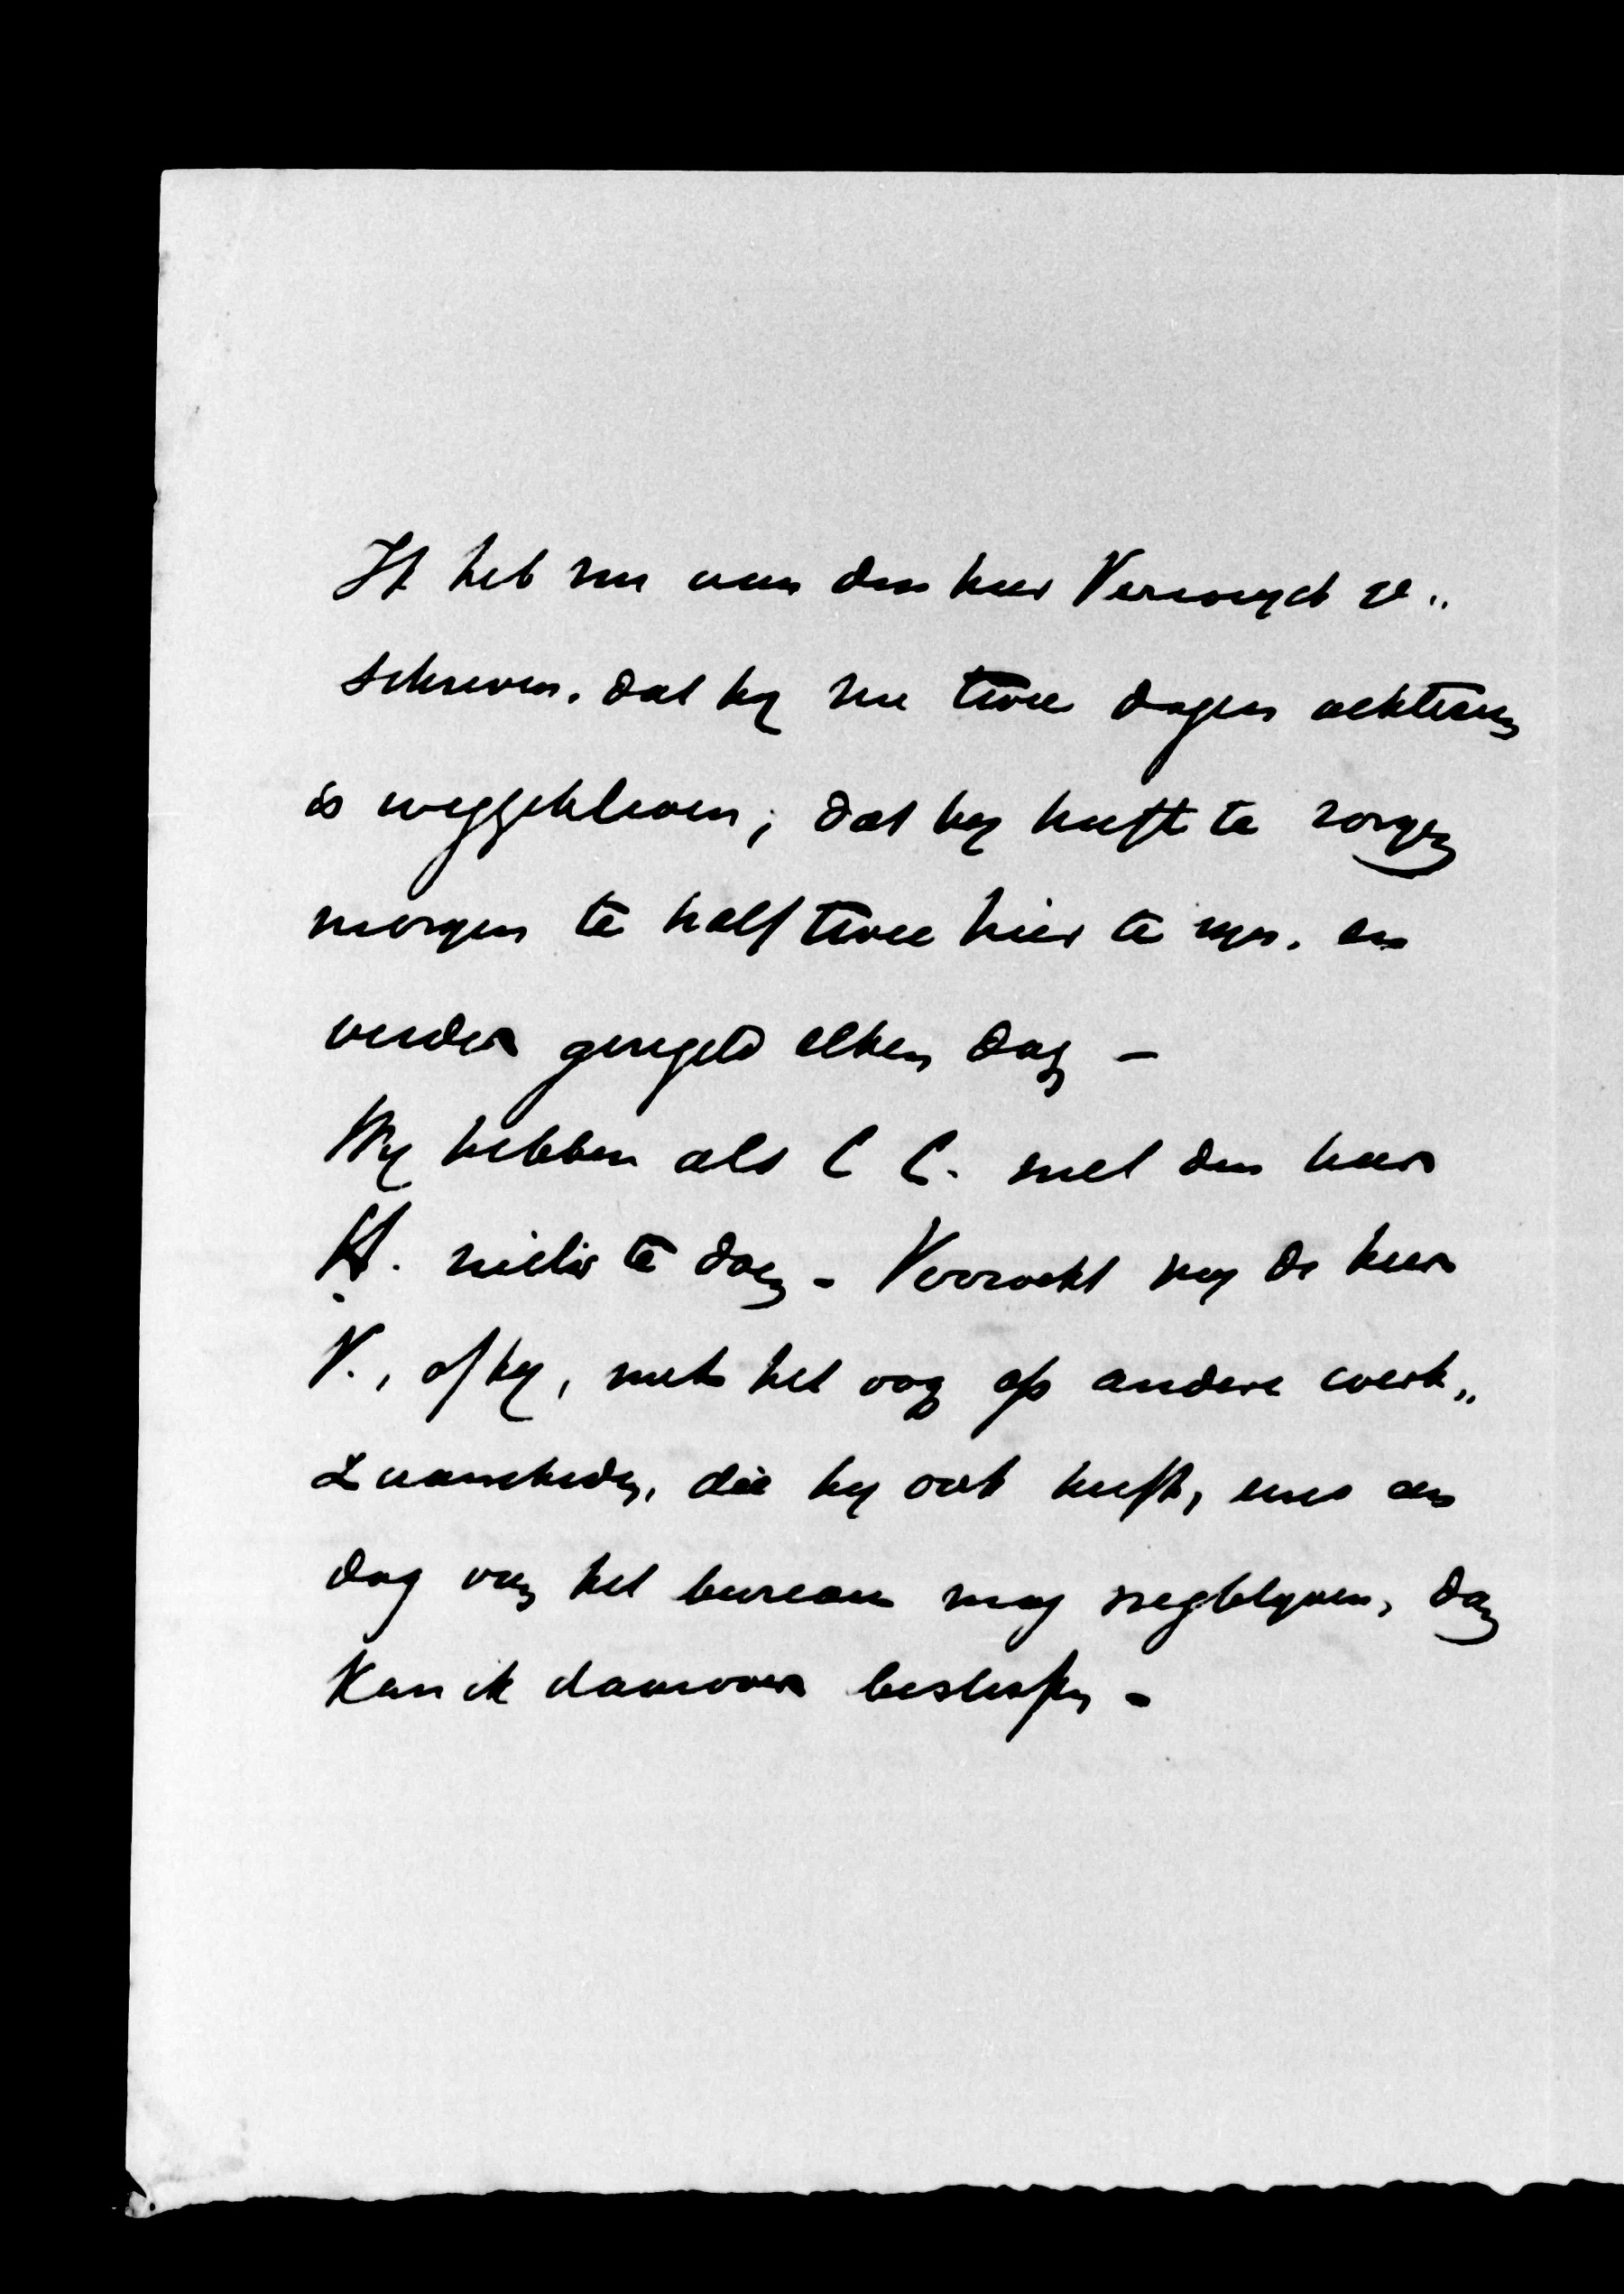 Ik heb nu aan den heer Verweyck ge„
schreven, dat hy nu twee dagen achtereen
is weggebleven; dat hy heeft te zorgen
morgen te half twee hier te zyn, en
verder geregeld elken dag –
Wy hebben als C C. met den heer
H. niets te doen – Verzoekt my de heer
V., of hy, met het oog op andere werk„
zaamheden, die hy ook heeft, eens een
dag van het bureau mag wegblyven, dan
kan ik daarover beslissen –